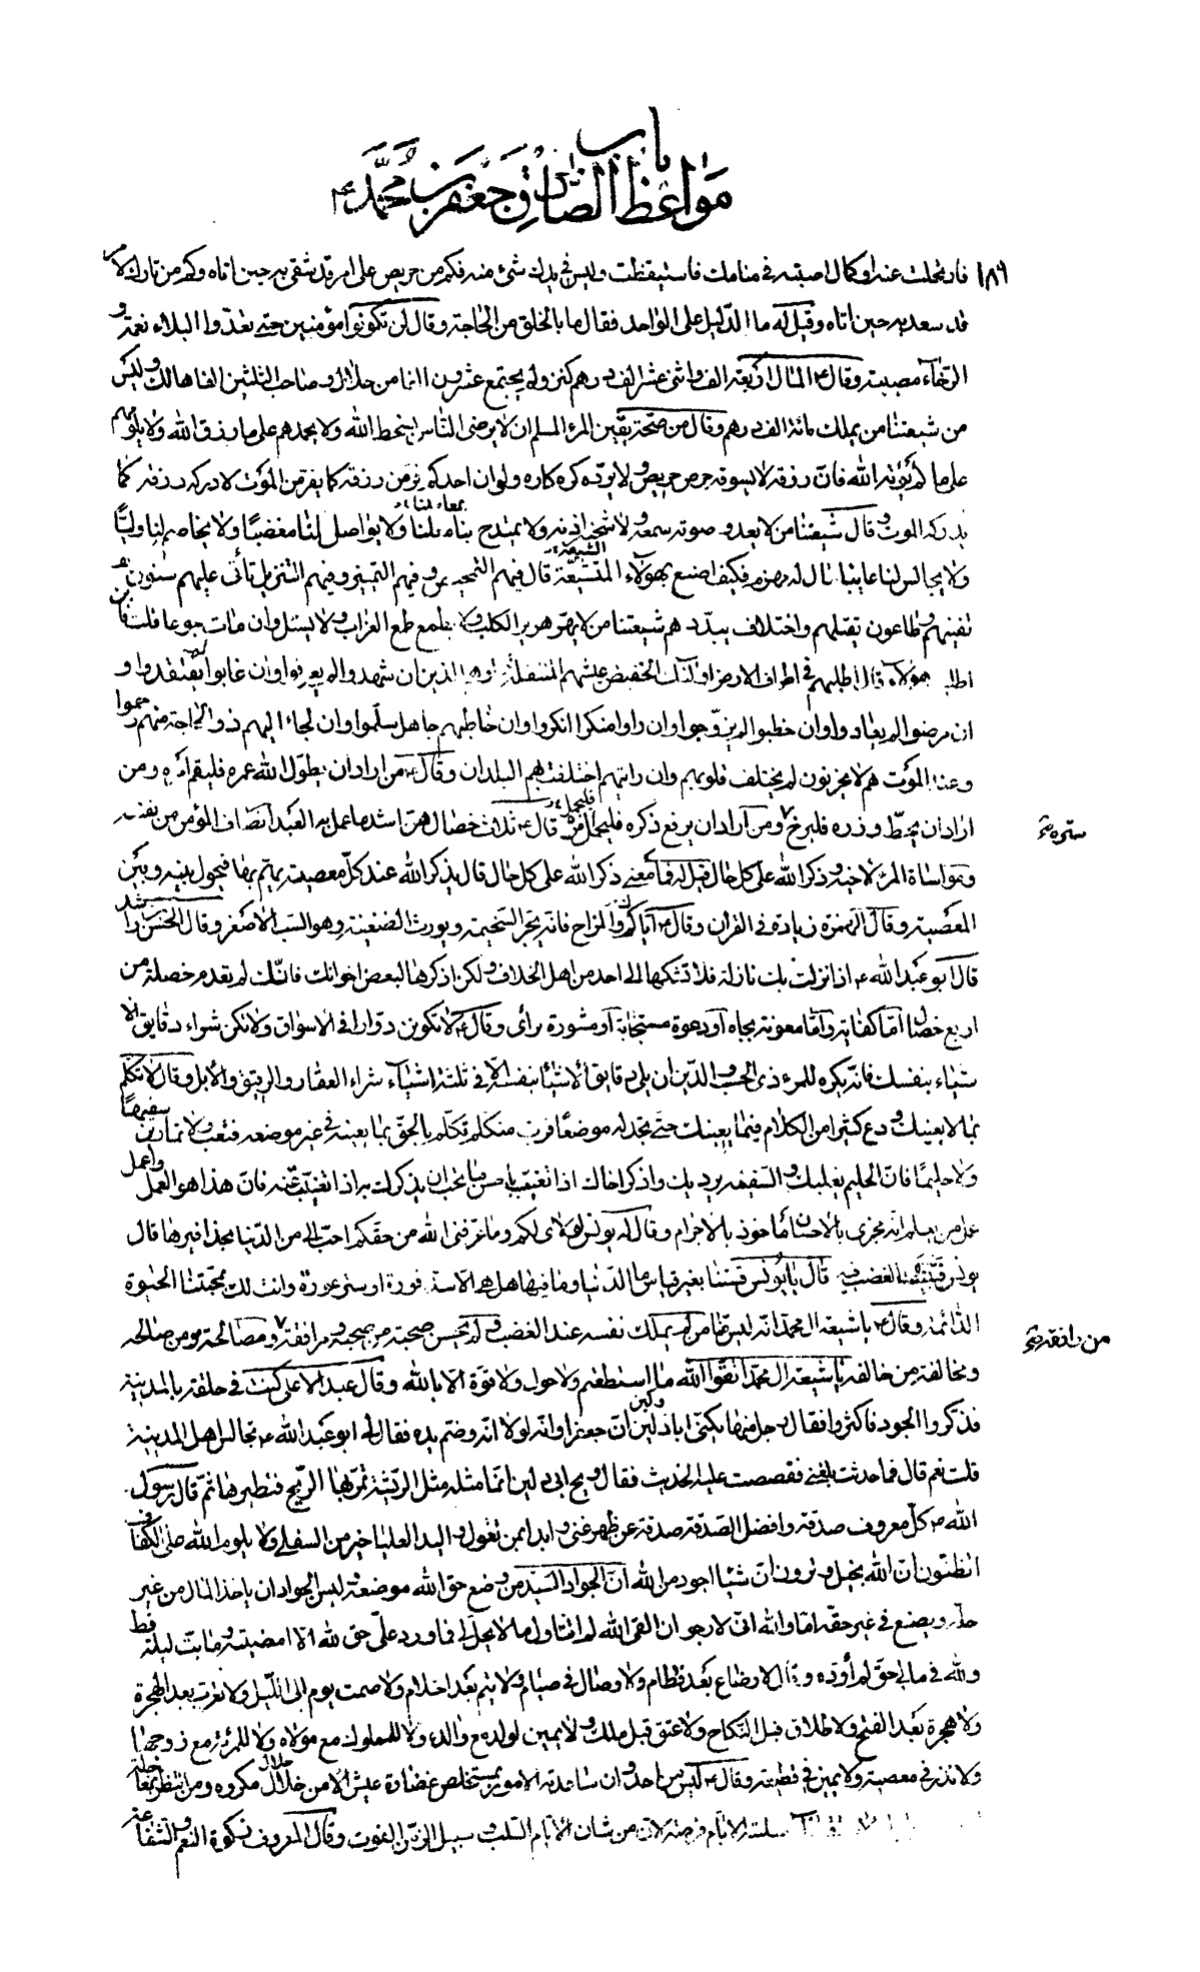 باب
مواعظ الصادق جعفر بن محمد ع
١٨٦ فارتحلت عنه او كمال اصبته في منامك فاستيقظت وليس في يدك شئ منه فكم من حريص على امر قد شقى به حين اتاه وكم من تارك لامر
قد سعد به حين اتاه وقيل له ما الدليل على الواحد فقال ما بالخلق من الحاجة وقال لن تكونوا مؤمنين حتى تعدوا البلاء نعمة و
الرخاء مصيبة وقال ع المال اربعة الف واثنى عشر الف درهم كنز ولم يجتمع عشرون الفا من حلال وصاحب الثلثين الفا هالك وليس
من شيعتنا من يملك مائة الف درهم وقال من صحة يقين المرء المسلم ان لا يرضى الناس بسخط الله ولا يحمدهم على ما رزق الله ولا يلومهم
على ما لم يؤته الله فان رزقه لا يسوقه حرص حريص ولا يرده كره كاره ولو ان احدكم فر من رزقه كما يفر من الموت لادركه رزقه كما
يدركه الموت وقال شيعتنا من لا يعدو صوته سمعه ولا شحنه اذنه ولا يمتدح بنا معلنا ولا يواصل لنا مغضبا ولا يخاصم لنا وليا
ولا يجالس لنا عايبا قال له مهزم فكيف اصنع بهؤلاء المتشيعة قال فيهم التمحيص وفيهم التمييز وفيهم التنزيل تأتى عليهم سنون
تفنيهم وطاعون يقتلهم واختلاف يبددهم شيعتنا من لا يهر هرير الكلب ولا يطمع طمع الغراب ولا يسئل وان مات جوعا قلت فاين
اطلب هؤلاء قال اطلبهم في اطراف الارض اولئك الخفيض عيشهم المنتقلة دارهم الذين ان شهدوا لم يعرفوا وان غابوا لم يفتقدوا و
ان مرضوا لم يعادوا وان خطبوا لم يزوجوا وان راوا منكرا انكروا وان خاطبهم جاهل سلموا وان لجاء اليهم ذو الحاجة منهم رحموا
وعند الموت هم لا يحزنون لم يختلف قلوبهم وان رايتهم اختلفت بهم البلدان وقال ع من اراد ان يطول الله عمره فليقم امره ومن
اراد ان يحط وزره فليرخ ومن اراد ان يرفع ذكره فليخمل امره وقال ع ثلاث خصال هن اشد ما عمل به العبد انصاف المؤمن من نفسه
ستره خ
ومواساة المرء لاخيه وذكر الله على كل حال قيل له فما معنى ذكر الله على كل حال قال يذكر الله عند كل معصية يهم بها فيحول بينه وبين
المعصية وقال الهمزة زيادة في القران وقال ع اياكم والمزاح فانه يجر السخيمة ويورث الضغينة وهو السب الاصغر وقال الحسن بن راشد
قال ابو عبد الله ع اذا نزلت بك نازلة فلا تشكها الى احد من اهل الخلاف ولكن اذكرها لبعض اخوانك فانك لم يعدم خصلة من
اربع خصال اما كفاية واما معونة بجاه او دعوة مستجابة او مشورة براى وقال ع لا تكونن دوارا في الاسواق ولا تكن شراء دقايق الا
شياء بنفسك فانه يكره للمرء ذى الحسب والدين ان يلى دقايق الاشياء بنفسه الا في ثلثة اشياء شراء العقار والرقيق والابل وقال لا تكلم
بما لا يعنيك ودع كثيرا من الكلام فيما يعنيك حتى تجد له موضعا فرب متكلم تكلم بالحق بما يعنيه في غير موضعه فتعب ولا تمارين سفيها
ولا حليما فان الحليم يغلبك والسفيه يرديك واذكر اخاك اذا تغيب باحسن ما تحب ان يذكرك به اذا تغيبت عنه فان هذا هو العمل واعمل
عمل من يعلم انه مجزى بالاحسان ماخوذ بالاجرام وقال له يونس لولاى لكم وما عرفنى الله من حقكم احب الى من الدنيا بحذافيرها قال
يونس فتبينت الغضب فيه قال يا يونس قستنا بغير قياس ما الدنيا وما فيها هل هى الا سد فورة او ستر عورة وانت لك بمحبتنا الحيوة
الدائمة وقال ع يا شيعة ال محمد انه ليس منا من لم يملك نفسه عند الغضب ولم يحسن صحبة من صحبه ومرافقة ومصالحة من صالحه
من رافقه خ
ومخالفة من خالفه يا شيعة ال محمد اتقوا الله ما استطعتم ولا حول ولا قوة الا بالله وقال عبد الاعلى كنت في حلقة بالمدينة
فذكروا الجود فاكثروا فقال رجل منها يكنى ابا دلين ان جعفرا وانه لولا انه وضم يده فقال لى ابو عبد الله ع تجالس اهل المدينة
قلت نعم قال فما حدثت بلغنى فقصصت عليه الحديث فقال ويح ابى دلين انما مثله مثل الريشة تمر بها الريح فتطيرها ثم قال قال رسول
الله ص كل معروف صدقة وافضل الصدقة صدقة عن ظهر غنى وابدا بمن تعول واليد العليا خير من السفلى ولا يلوم الله على الكفاف
اتظنون ان الله بخيل وترون ان شيئا اجود من الله ان الجواد السيد من وضع حق الله موضعه وليس الجواد ان ياخذ المال من غير
حله ويضع في غير حقه اما والله انى لارجو ان القى الله لم اتناول ما لا يحل لى وما ورد على حق لله الا امضيته وما بت ليلة قط
ولله في مالى حق لم أؤده وقال لا رضاع بعد فطام ولا وصال في صيام ولا يتم بعد احتلام ولا صمت يوم الى الليل ولا تعرب بعد الهجرة
ولا هجرة بعد الفتح ولا طلاق قبل النكاح ولا عتق قبل ملك ولا يمين لولد مع والده ولا للمملوك مع مولاه ولا للمرئة مع زوجها
ولا نذر في معصية ولا يمين في قطيعة وقال ع ليس من احد وان ساعدته الامور بمستخلص غضارة عيش الا من خلال مكروه ومن انتظر بمعاجلة
سلبته الايام فرصته لان من شان الايام السلب وسبيل الزمن الفوت وقال المعروف زكوة النعم والشفاعة